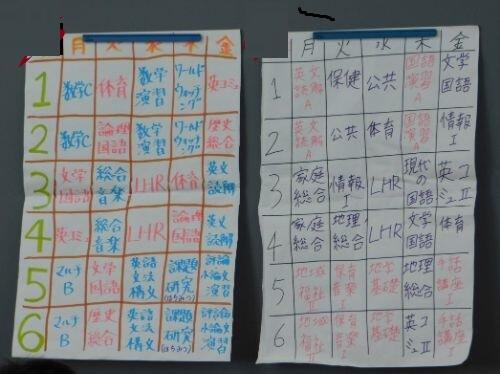 月 火 水 木 金
1 数学C 体育 数学演習 ワールドウォッチング 英コミュ
2 数学C 論理国語 数学演習 ワールドウォッチング 歴史総合
3 文学国語 総合音楽 LHR 体育 英文読解
4 英コミュ 総合音楽 LHR 論理国語 英文読解
5 マルチB 文学国語 英語文法構文 課題研究(はちみつ) 評論小論文演習
6 マルチB 歴史総合 英語文法構文 課題研究(はちみつ) 評論小論文演習
月 火 水 木 金
1 英文読解A 保健 公共 国語演習A 文学国語
2 英文読解A 公共 体育 国語演習A 情報I
3 家庭総合 情報I LHR 現代の国語 英コミュII
4 家庭総合 地理総合 LHR 文学国語 体育
5 地域福祉II 保育音楽I 地学基礎 地理総合 手話講座I
6 地域福祉II 保育音楽I 地学基礎 英コミュII 手話講座I